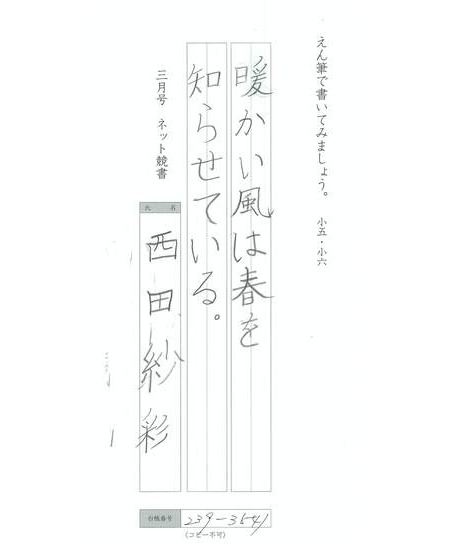 えん筆で書いてみましょう。 小五・小六
暖かい風は春を
知らせている。
三月号 ネット競書
氏名
西田紗彩
台帳番号 239-3541
(コピー不可)